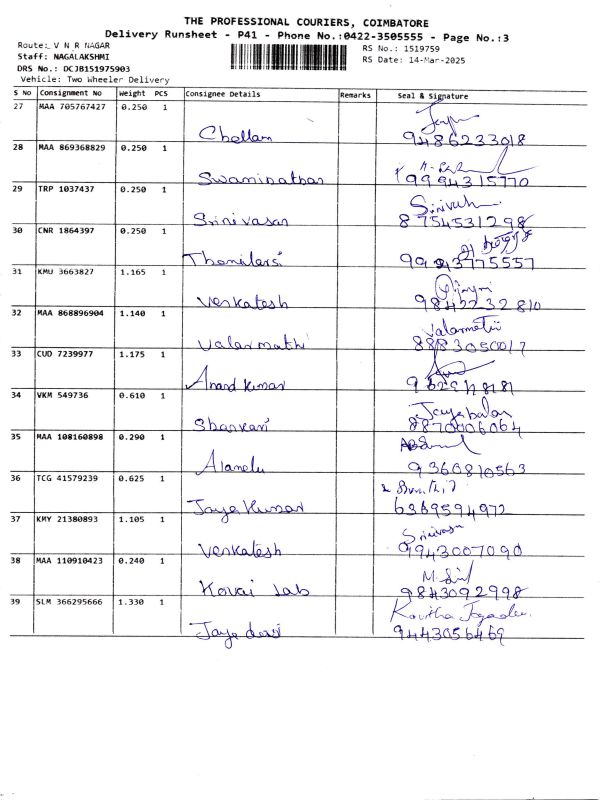 THE PROFESSIONAL COURIERS, COIMBATORE
Delivery Runsheet - P41 - Phone No.:0422-3505555 - Page No.:3
Route: V N R NAGAR
RS No.: 1519759
Staff: NAGALAKSHMI
RS Date: 14-Mar-2025
DRS No.: DCJB151975903
Vehicle: Two Wheeler Delivery
S No Consignment No Weight PCS Consignee Details Remarks Seal & Signature
27 MAA 705767427 0.250 1
Chellam 9486233018
28 MAA 869368829 0.250 1
Swaminathan 9994315770
29 TRP 1037437 0.250 1 Srinivasan
Srinivasan 8754531298
30 CNR 1864397 0.250 1
31 KMU 3663827 1.165 1
Venkatesh 9842232810
32 MAA 868896904 1.140 1 Valarmathi
Valarmathi 8883050017
33 CUD 7239977 1.175 1
Anand Kumar
34 VKM 549736 0.610 1 Jayabalan
8870006064
35 MAA 108160898 0.290 1
Alamelu 9360810563
36 TCG 41579239 0.625 1
Jaya Kumar 6369594972
37 KMY 21380893 1.105 1 Srinivasan
Venkatesh 9943007090
38 MAA 110910423 0.240 1
Kovai Lab 9843092998
39 SLM 366295666 1.330 1 Kavitha
Jaya devi 9443056469